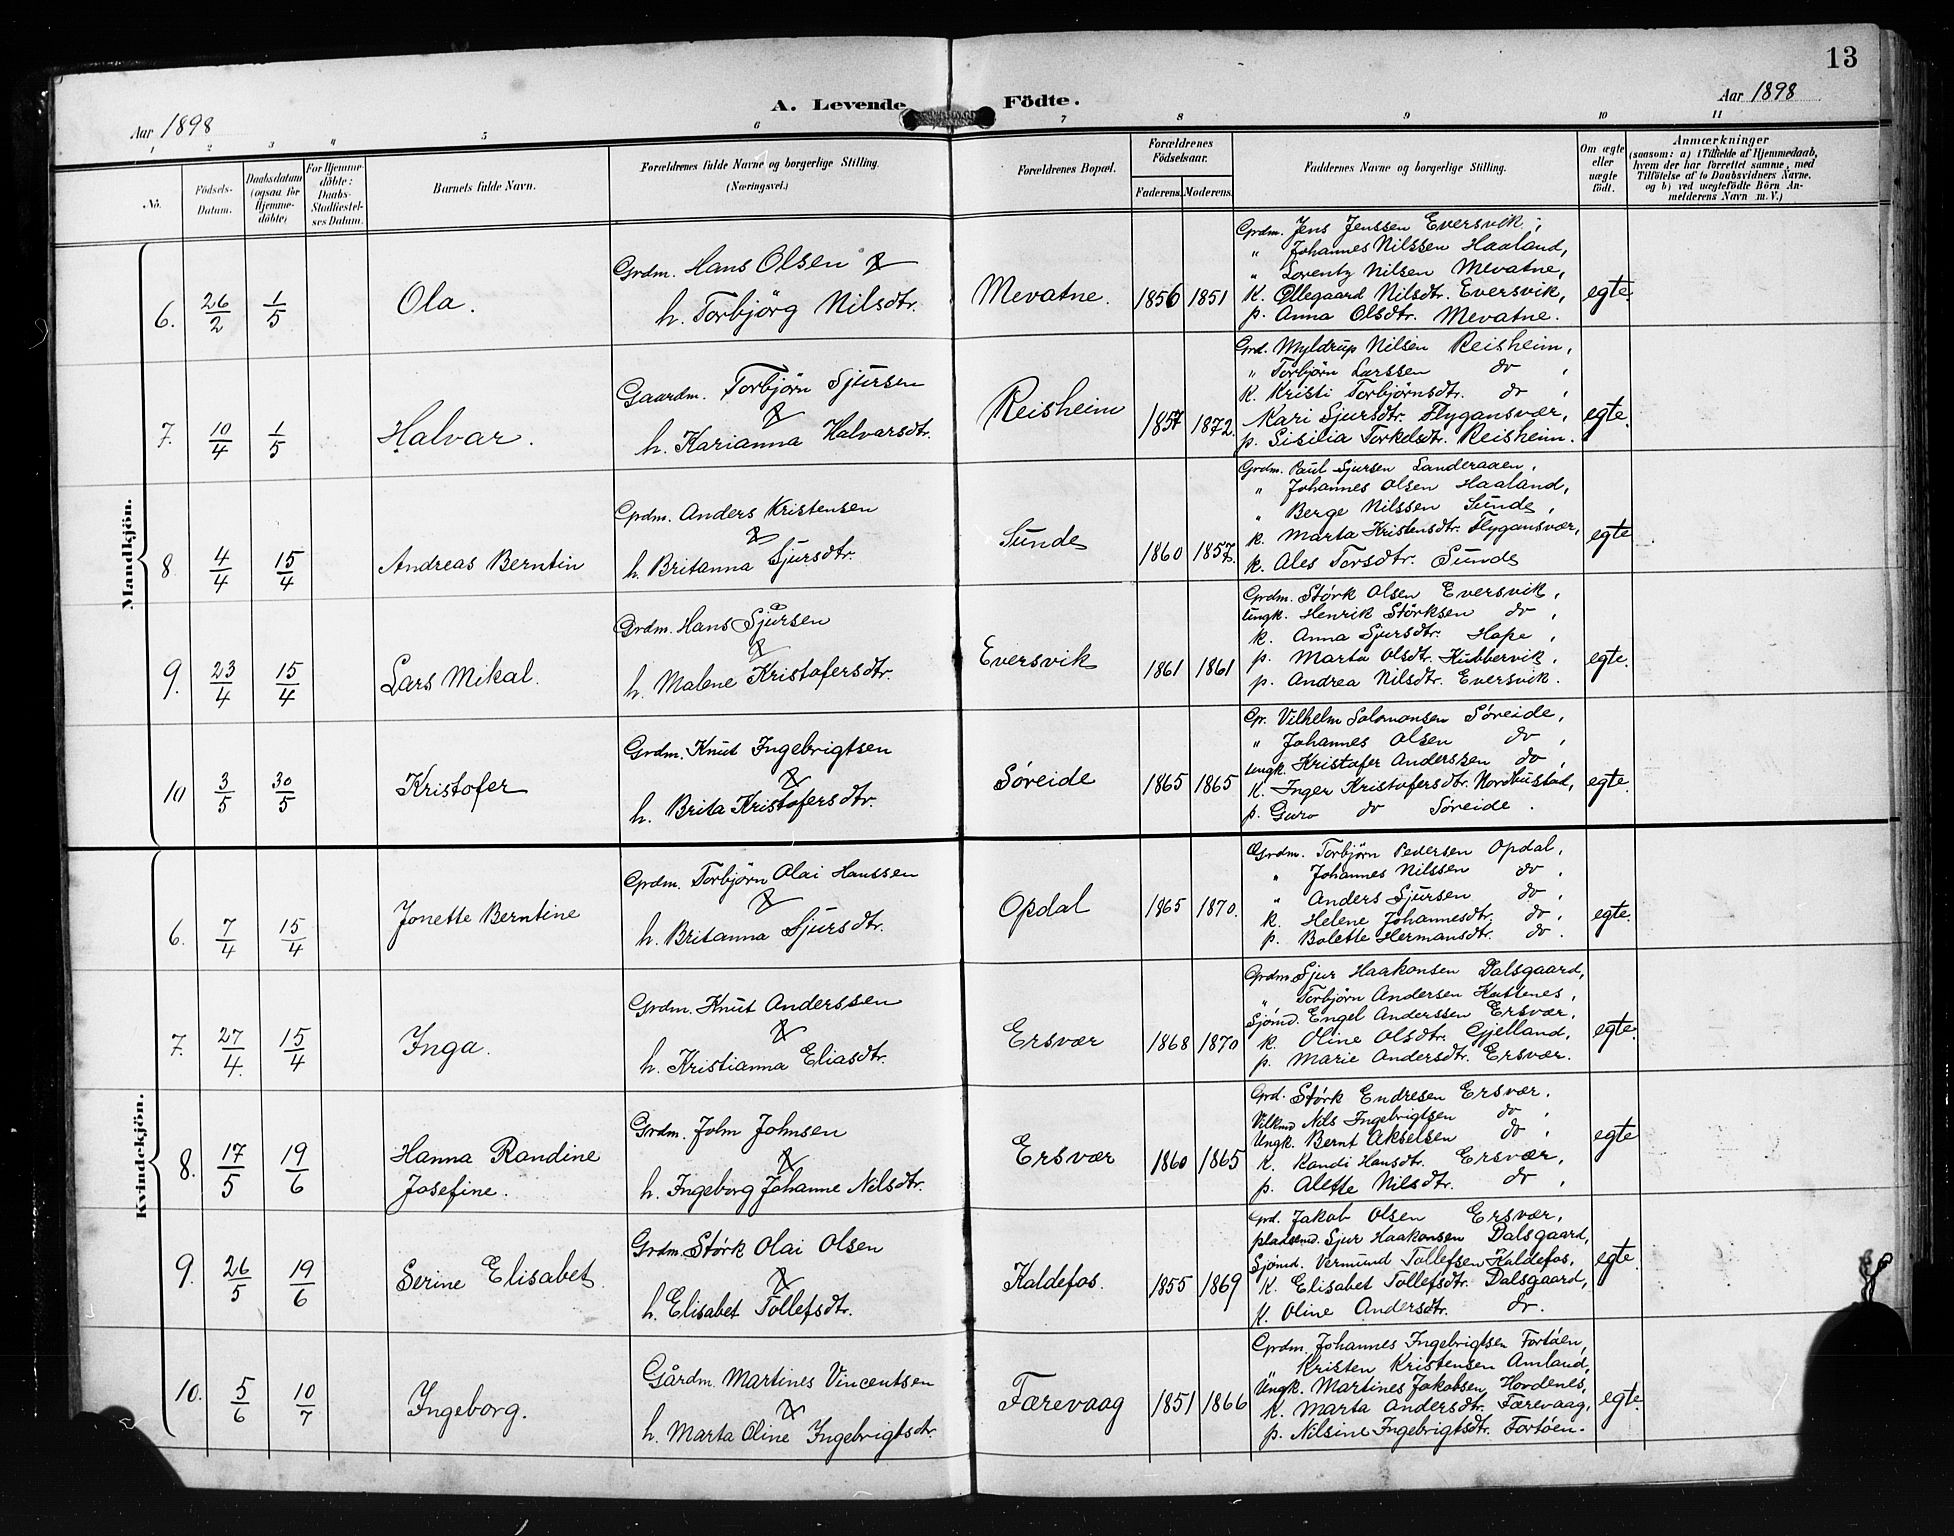 13
A. Levende Födte.
Aar 1898
Aar 1898
1 2 3 4 5 6 7 8 9 10 11
Nö.
Födsels-Datum.
Daabsdatum (ogsaa for Hjemmedöbte)
For Hjemmedöbte: Daabs-Stadfæstelses Datum.
Barnets fulde Navn.
Forældrenes fulde Navne og borgerlige Stilling. (Næringsvei.)
Forældrenes Bopæl.
Forældrenes Födselsaar.
Faderens. Moderens.
Faddernes Navne og borgerlige Stilling.
Om ægte eller uægte födt.
Anmærkninger
(saasom: a) i Tilfælde af Hjemmedaab, hvem der har forrettet samme, med Tilföielse af to Daabsvidners Navne, og b) ved uægtefödte Börn Anmelderens Navn m. V.)
Mandkjön.
6. 26/2 1/5 Ola.
Grdm. Hans Olsen &
h. Torbjörg Nilsdtr.
Mevatne. 1856 1851
Grdm. Jens Jenssen Eversvik,
" Johannes Nilssen Haaland,
" Lorentz Nilsen Mevatne,
K. Ollegaard Nilsdtr. Eversvik,
p. Anna Olsdtr. Mevatne.
egte.
7. 10/4 1/5 Halvar.
Gaardm. Torbjörn Sjursen
&
h. Karianna Halvarsdtr.
Reisheim 1857 1872.
Grd. Myldrup Nilsen Reisheim,
" Torbjörn Larssen do,
K. Kristi Torbjørnsdtr. do,
Kari Sjursdtr. Flygansvær,
p. Sisilia Torkelsdtr. Reisheim.
egte.
8 4/4 15/4 Andreas Berntin
Grdm. Anders Kristensen
&
h. Britanna Sjursdtr.
Sunde 1860 1857.
Grdm. Paul Sjursen Landeraaen,
" Johannes Olsen Haaland,
" Berge Nilssen Sunde,
k. Marta Kristensdtr. Flygansvær,
k. Ales Torsdtr. Sunde
egte
9. 23/4 15/4 Lars Mikal.
Grdm. Hans Sjursen
&
h. Malene Kristofersdtr.
Eversvik 1861 1861
Grdm. Størk Olsen Eversvik,
Ungk. Henrik Størksen do,
k. Anna Sjursdtr. Hope,
p. Marta Olsdtr. Kubbervik,
p. Andrea Nilsdtr. Eversvik.
egte.
10 3/5 30/5 Kristofer
Grdm. Knut Ingebrigtsen
&
h. Brita Kristofersdtr.
Søreide 1865 1865
Gr. Vilhelm Salomonsen Søreide,
" Johannes Olsen do,
Ungk. Kristofer Anderssen do,
K. Inger Kristofersdtr. Nordhustad,
p. Guro do Søreide.
egte.
Kvindekjön.
6. 7/4 15/4 Jonette Berntine
Grdm. Torbjørn Olai Hanssen
&
h. Britanna Sjursdtr.
Opdal 1865 1870.
Grdm. Torbjørn Pedersen Opdal,
" Johannes Nilssen do,
" Anders Sjursen do,
k. Helene Johannesdtr. do,
p. Bolette Hermansdtr. do.
egte.
7. 27/4. 15/4 Inga.
Grdm. Knut Anderssen
&
h. Kristianna Eliasdtr.
Ersvær 1868 1870
Grdm. Sjur Haakonsen Dalsgaard,
" Torbjørn Andersen Kattenes,
Sjømd. Engel Anderssen Ersvær,
k. Oline Olsdtr. Gjelland,
p. Marie Andersdtr. Ersvær.
egte.
8. 17/5 19/6 Hanna Randine
Josefine.
Grdm. John Johnsen
&
h. Ingeborg Johanne Nilsdtr.
Ersvær 1860 1865
Grd. Størk Endresen Ersvær,
Nils Ingebrigtsen do,
Ungk. Bernt Akselsen do,
K. Randi Hansdtr. Ersvær,
p. Alette Nilsdtr. do,
egte
9. 26/5 19/6 Serine Elisabet
Grdm. Størk Olai Olsen
&
h. Elisabet Tollefsdtr.
Kaldefos. 1855 1869
Grd. Jakob Olsen Ersvær,
pladsmd. Sjur Haakonsen Dalsgaard,
Sjømd. Vermund Tollefsen Kaldefos,
K. Elisabet Tollefsdtr. Dalsgaard,
K. Oline Andersdtr. do.
egte
10. 5/6 10/7 Ingeborg.
Gårdm. Martines Vincentsen
&
h. Marta Oline Ingebrigtsdtr.
Færevaag 1851 1866
Grdm. Johannes Ingebrigtsen Fortøen,
" Kristen Kristensen Amland,
Ungk. Martines Jakobsen Hordenes,
K. Marta Andersdtr. Færevaag,
p. Nilsine Ingebrigtsdtr. Fortøen.
egte.